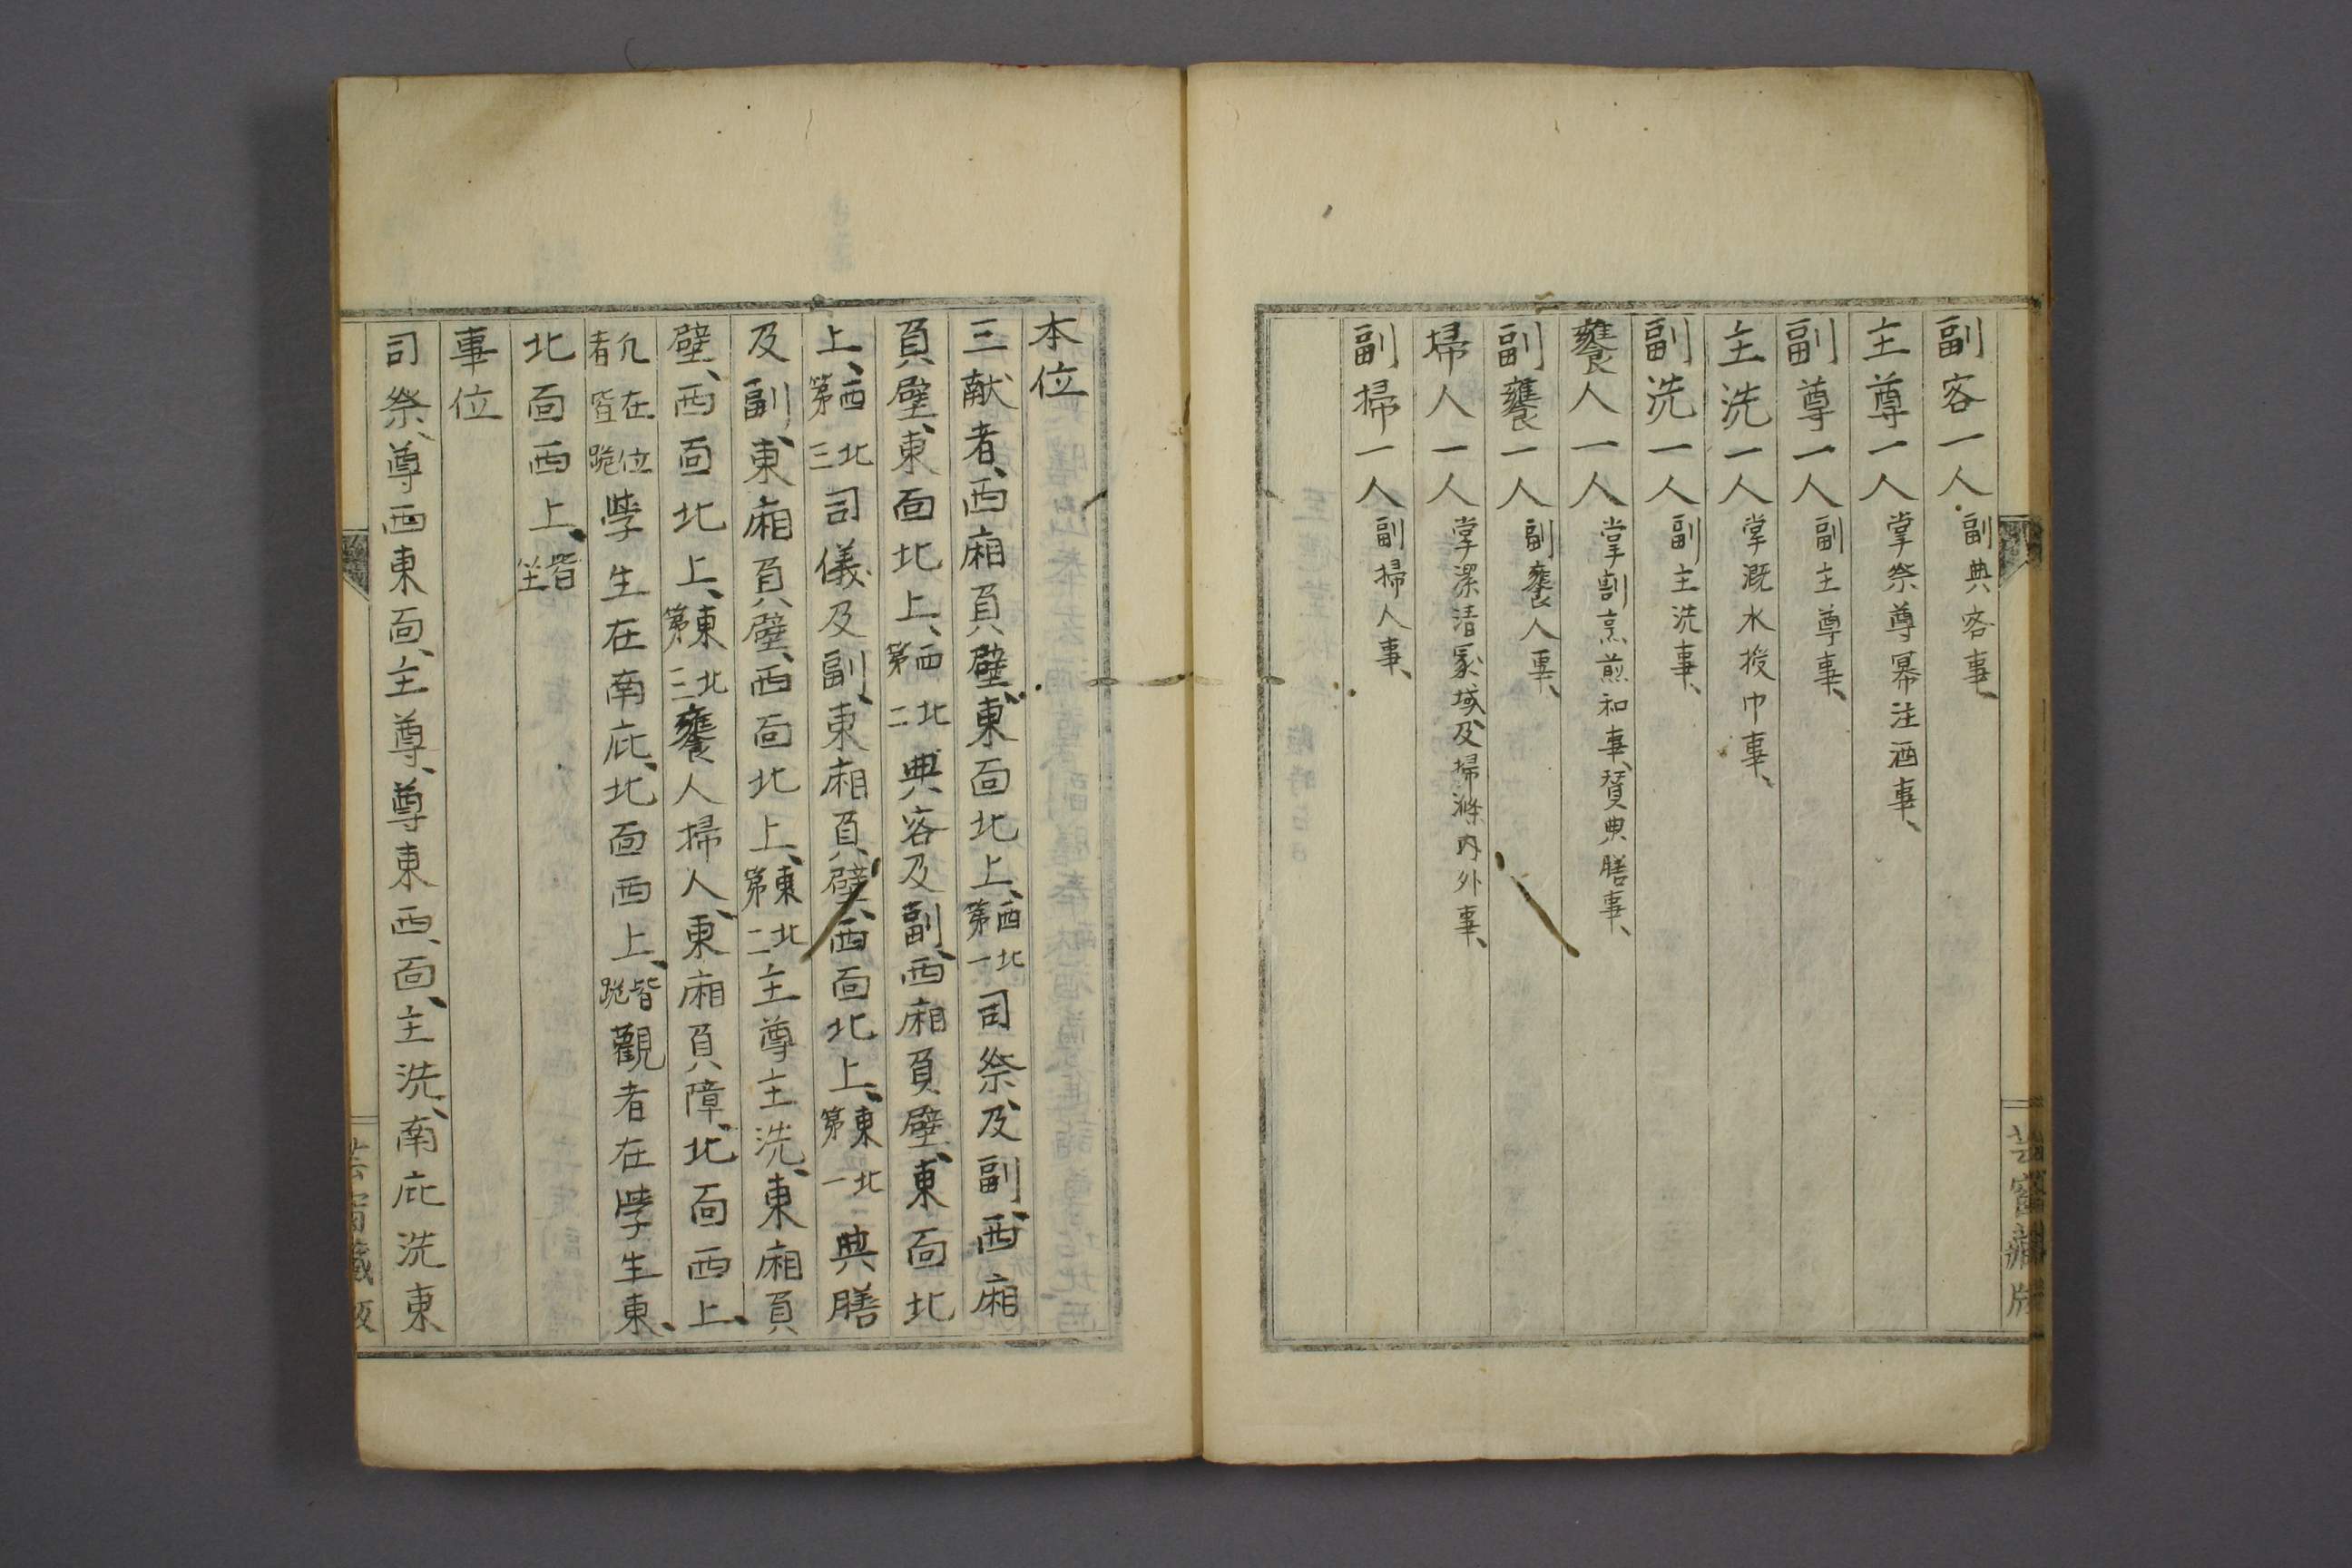 副客一人副典客事、
主尊一人掌祭尊冪注酒事、
副尊一人副主尊事、
主洗一人掌漑水授巾事、
副洗一人副主洗事、
饔人一人掌割烹煎和事、賛典膳事、
副饔一人副饔人事、
掃人一人掌潔清家域及掃滌内外事、
副掃一人副掃人事、
芸窗藏版
本位
三献者、西廂負壁、東面北上、西北第一司祭及副、西廂
負壁、東面北上、西北第二典客及副、西廂負壁、東面北
上、西北第三司儀及副、東廂負壁、西面北上、東北第一典膳
及副、東廂負壁、西面北上、東北第二主尊主洗、東廂負
壁、西面北上、東北第三饔人掃人、東廂負障、北面西上、
凡在位者皆跪學生在南庇、北面西上、皆跪觀者在學生東、
北面西上、皆坐
事位
司祭、尊西東面、主尊、尊東西面、主洗、南庇洗東
芸窗藏版